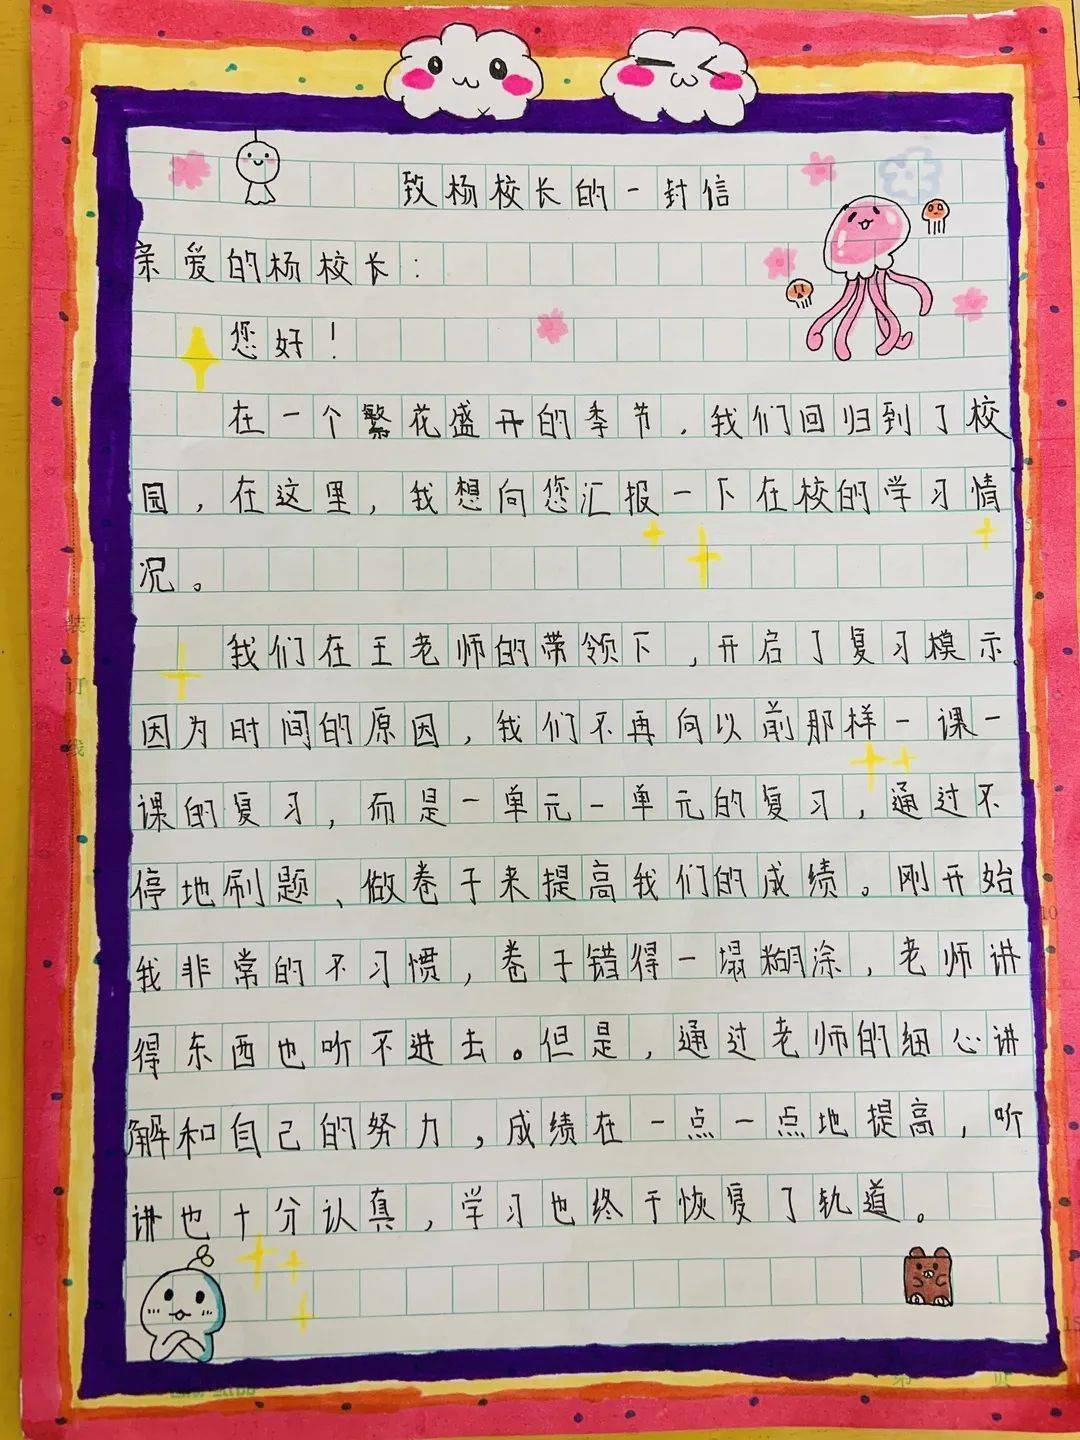 致杨校长的一封信
亲爱的杨校长:
您好!
在一个繁花盛开的季节,我们回归到了校
园,在这里,我想向您汇报一下在校的学习情
况。
我们在王老师的带领下,开启了复习模示。
因为时间的原因,我们不再向以前那样一课一
课的复习,而是一单元一单元的复习,通过不
停地刷题、做卷子来提高我们的成绩。刚开始
我非常的不习惯,卷子错得一塌糊涂,老师讲
得东西也听不进去。但是,通过老师的细心讲
解和自己的努力,成绩在一点一点地提高,听
讲也十分认真,学习也终于恢复了轨道。
装
订
线
10
15
第 页